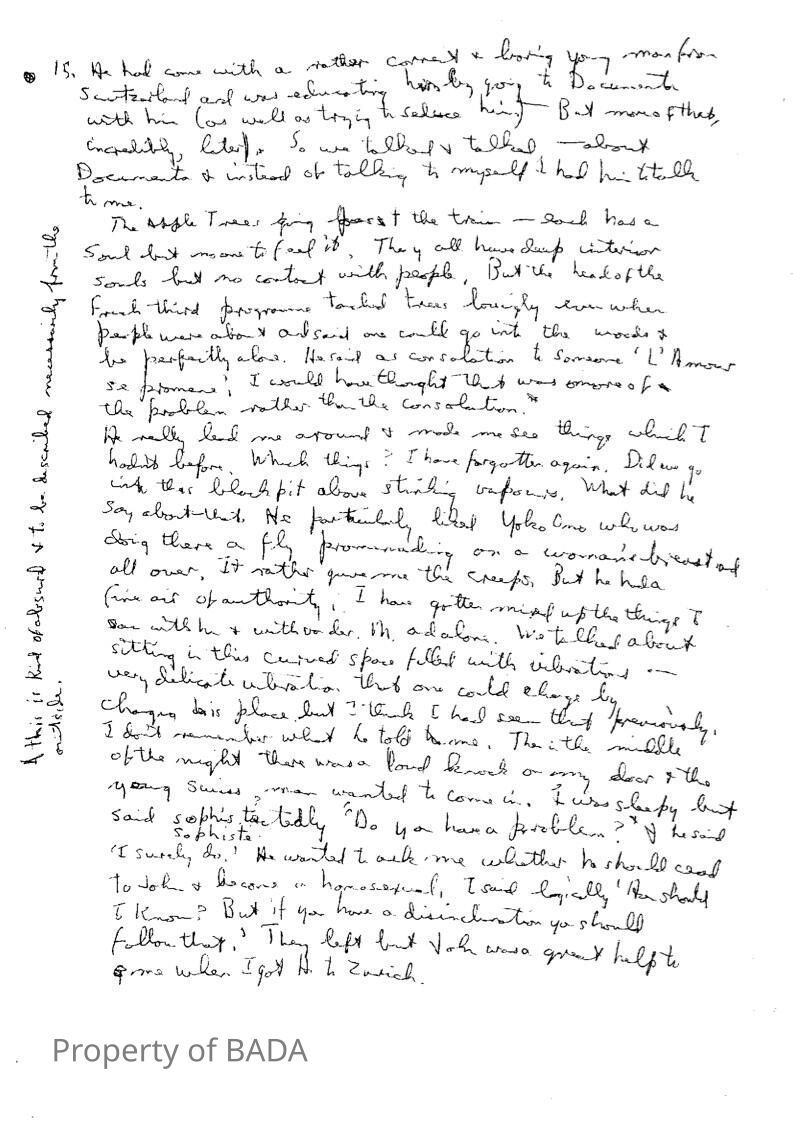 15. He had come with a rather correct & boring young man from
Switzerland and was educating him by going to Documenta
with him (as well as trying to seduce him) — But more of that,
incredibly, later). So we talked & talked — about
Documenta & instead of talking to myself I had him to talk
to me.
The Apple Trees going past the train — each has a
Soul but no one to feel it. They all have deep interior
souls but no contact with people. But the head of the
French third programme touched trees lovingly even when
people were about and said one could go into the woods &
be perfectly alone. He said as consolation to someone 'L'Amour
se promene', I would have thought that was more of
the problem rather than the consolation.*
He really lead me around & made me see things which I
hadn't before. Which things? I have forgotten again. Did we go
into this black pit above stinking vapours. What did he
say about that. He particularly liked Yoko Ono who was
doing there a fly promenading on a woman's breast and
all over. It rather gave me the creeps. But he had a
fine air of authority. I have gotten mixed up the things I
saw with him & with van der M. and alone. We talked about
sitting in this curved space filled with vibrations —
very delicate vibration that one could change by
changing his place but I think I had seen that previously.
I don't remember what he told me. Then in the middle
of the night there was a loud knock on my door & the
young Swiss man wanted to come in. I was sleepy but
said sophistectedly "Do you have a problem?" & he said
sophiste
'I surely do.' He wanted to ask me whether he should
to John & become a homosexual. I said logically 'How should
I know? But if you have a disinclination you should
follow that.' They left but John was a great help to
me when I got to Zurich.
this is kind of absurd & to be described necessarily from the
outside.
Property of BADA